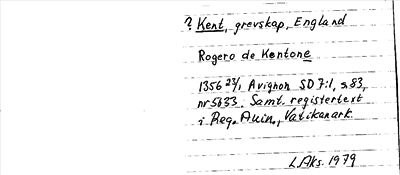 ? Kent, grevskap, England
Rogero de Kentone
1356 23/1 Avignon SD 7:1, s. 83,
nr 5633. Samt. registertext
i Reg. Avin., Vatikanark.
L Aks. 1979